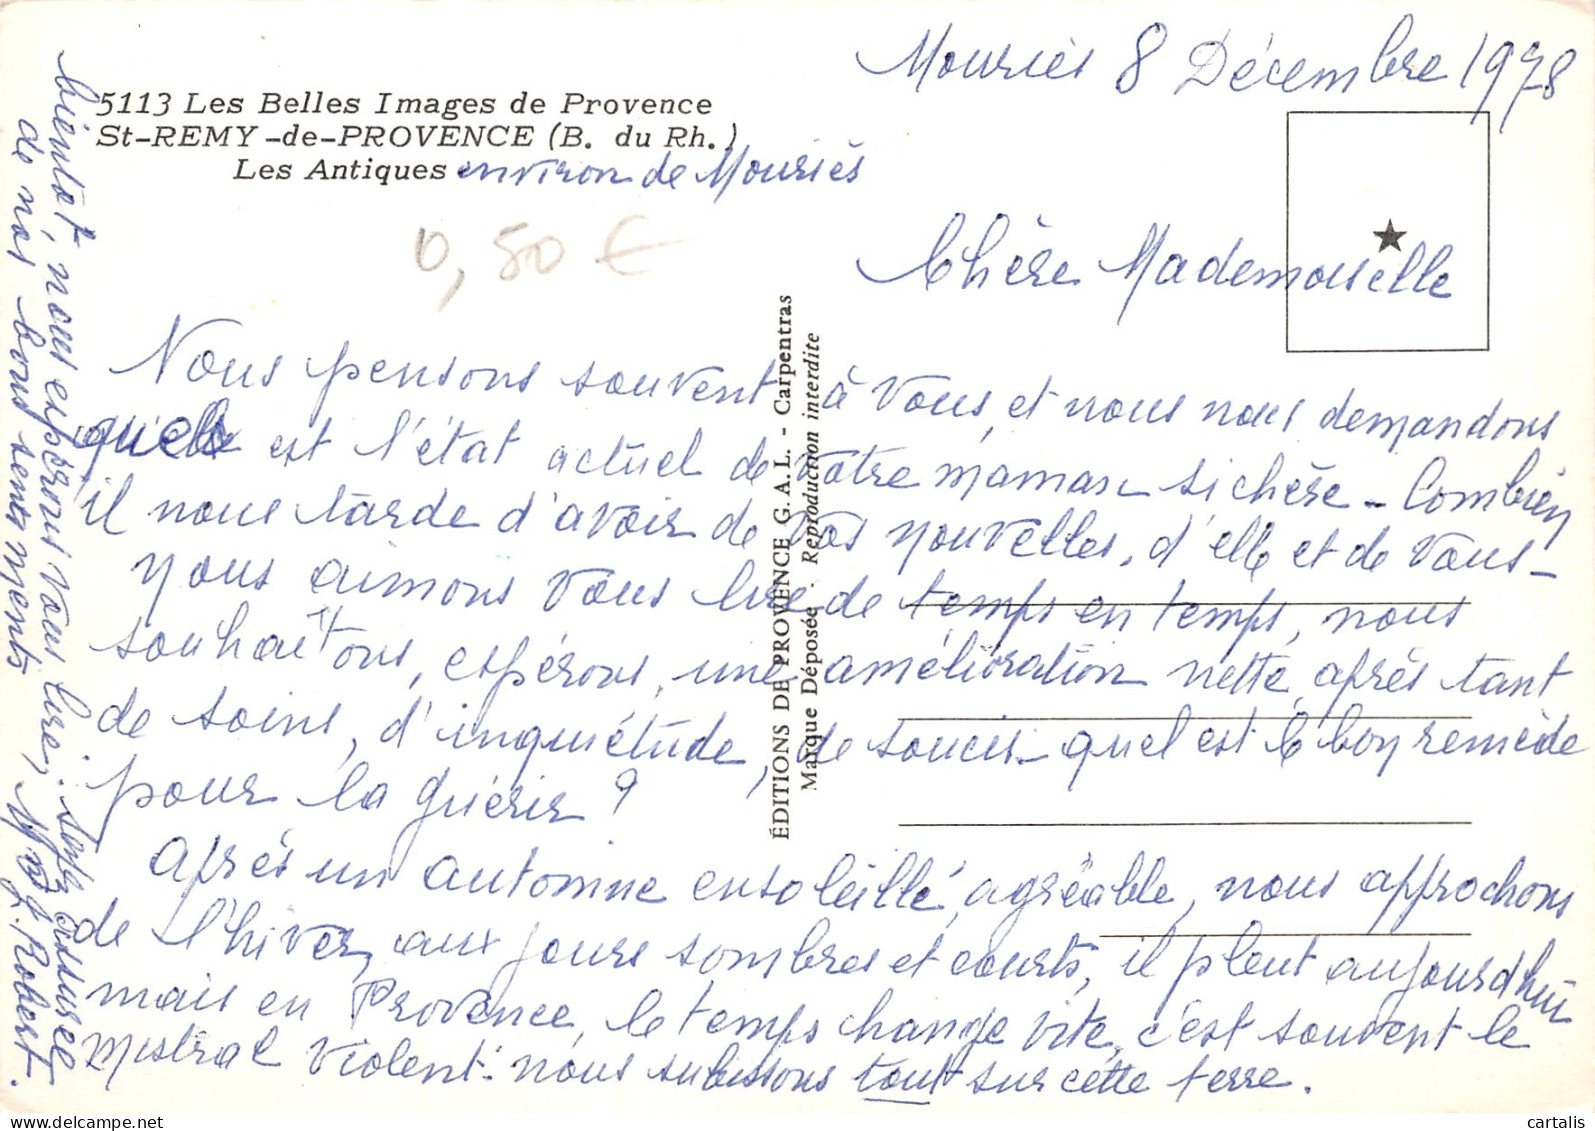 Mouriès 8 Décembre 1978
5113 Les Belles Images de Provence
St-REMY-de-PROVENCE (B. du Rh.)
Les Antiques environ de Mouriès
0,50 €
Chère Mademoiselle
Nous pensons souvent à vous, et nous nous demandons
quel est l'état actuel de votre maman si chère - Combien
il nous tarde d'avoir de vos nouvelles, d'elle et de vous -
nous aimons vous lire de temps en temps, nous
souhaitons, espérons, une amélioration nette, après tant
de soins, d'inquiétude, de soucis - quel est le bon remède
pour la guérir ?
Après un automne ensoleillé, agréable, nous approchons
de l'hiver, aux jours sombres et courts, il pleut aujourd'hui
mais en Provence, le temps change vite, c'est souvent le
mistral violent. nous subissons tout sur cette terre.
bientôt, nous espérons vous lire, soyez assurée
de nos bons sentiments
Robert.
ÉDITIONS DE PROVENCE G.A.L. - Carpentras
Marque Déposée . Reproduction interdite
cartalis